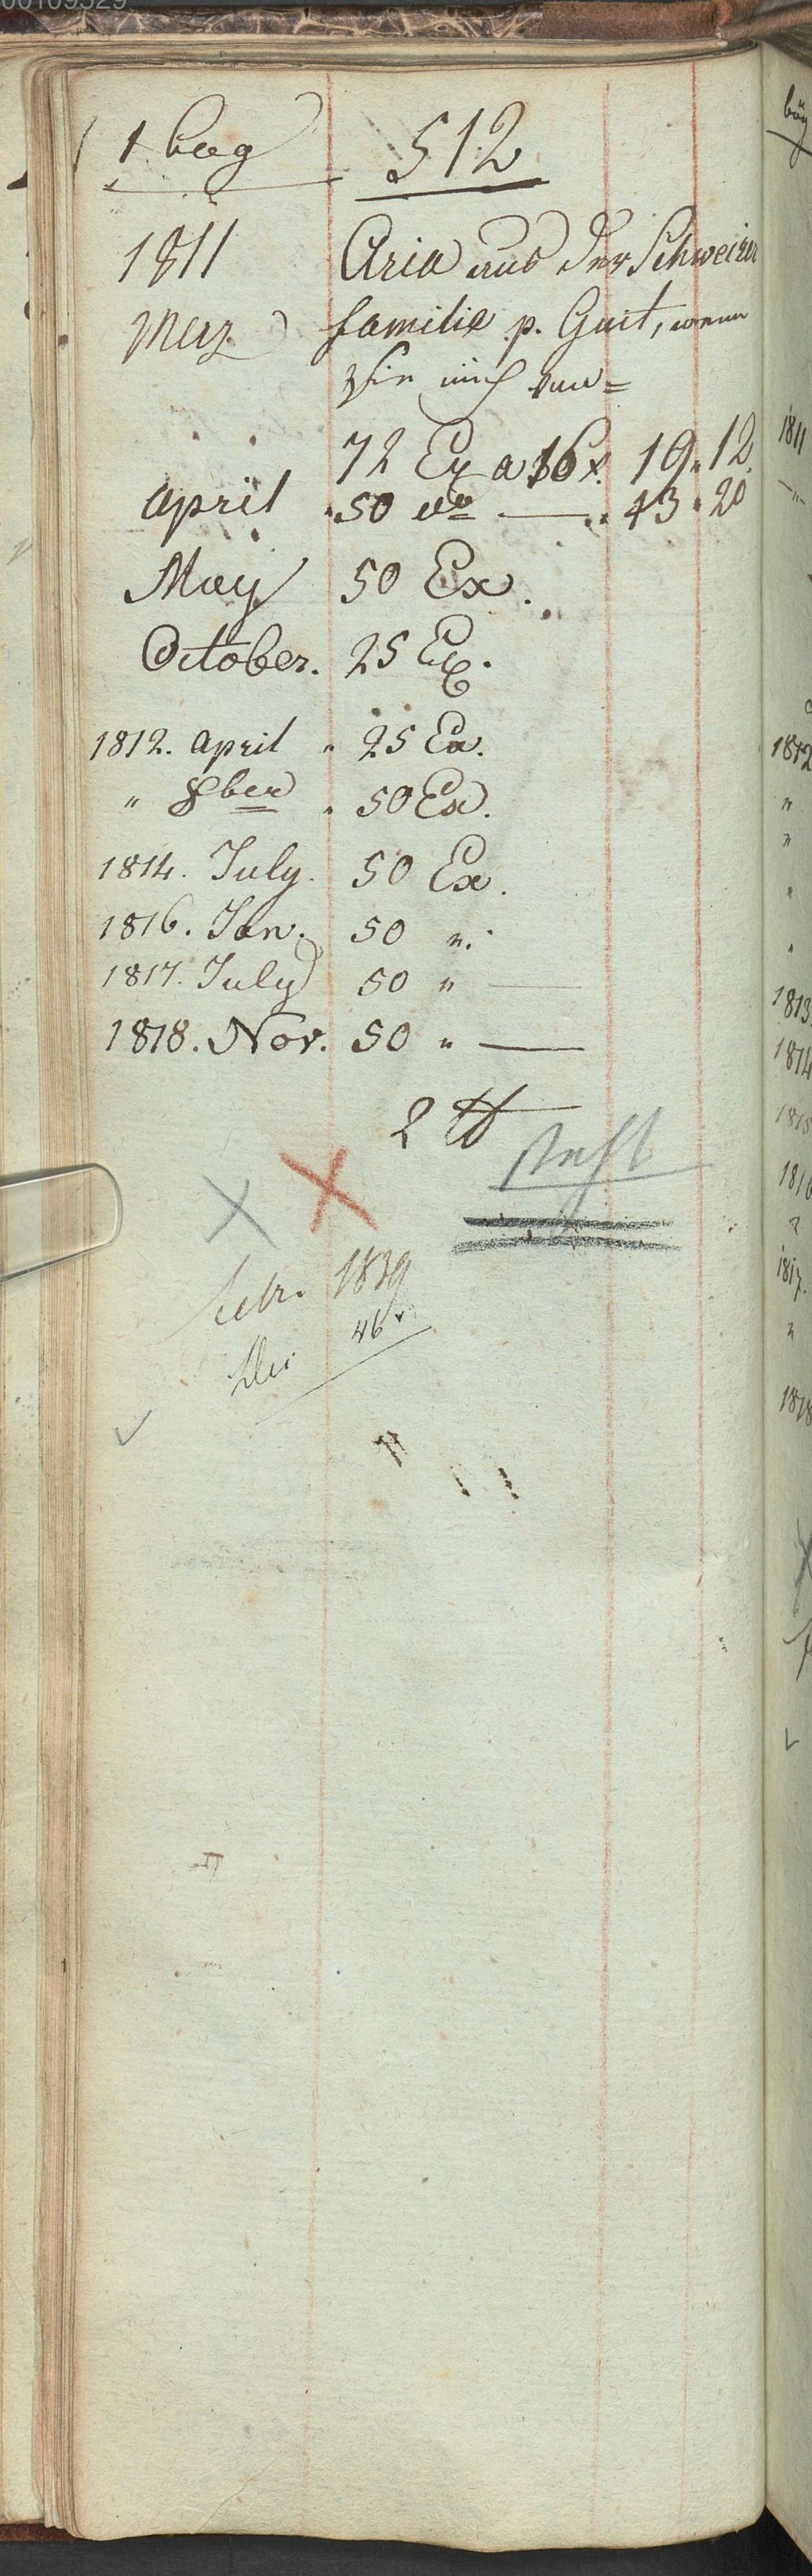 1 bog 512
1811 Aria aus der Schweizer
Merz familie p. Guit, wenn
Sie mich nur=
72 Ex a 16 x. 19 " 12
april " 50 do — " 13 " 20
May 50 Ex.
October. 25 Ex.
1812. april " 25 Ex.
" 8ber " 50 Ex.
1814. July. 50 Ex.
1816. Jan. 50 ".
1817. July 50 " —
1818. Nov. 50 " —
2 tt
steht
X X
1839
46
bög
1811
1812
"
"
"
"
1813.
1814
1815
1816
"
1817.
"
1818